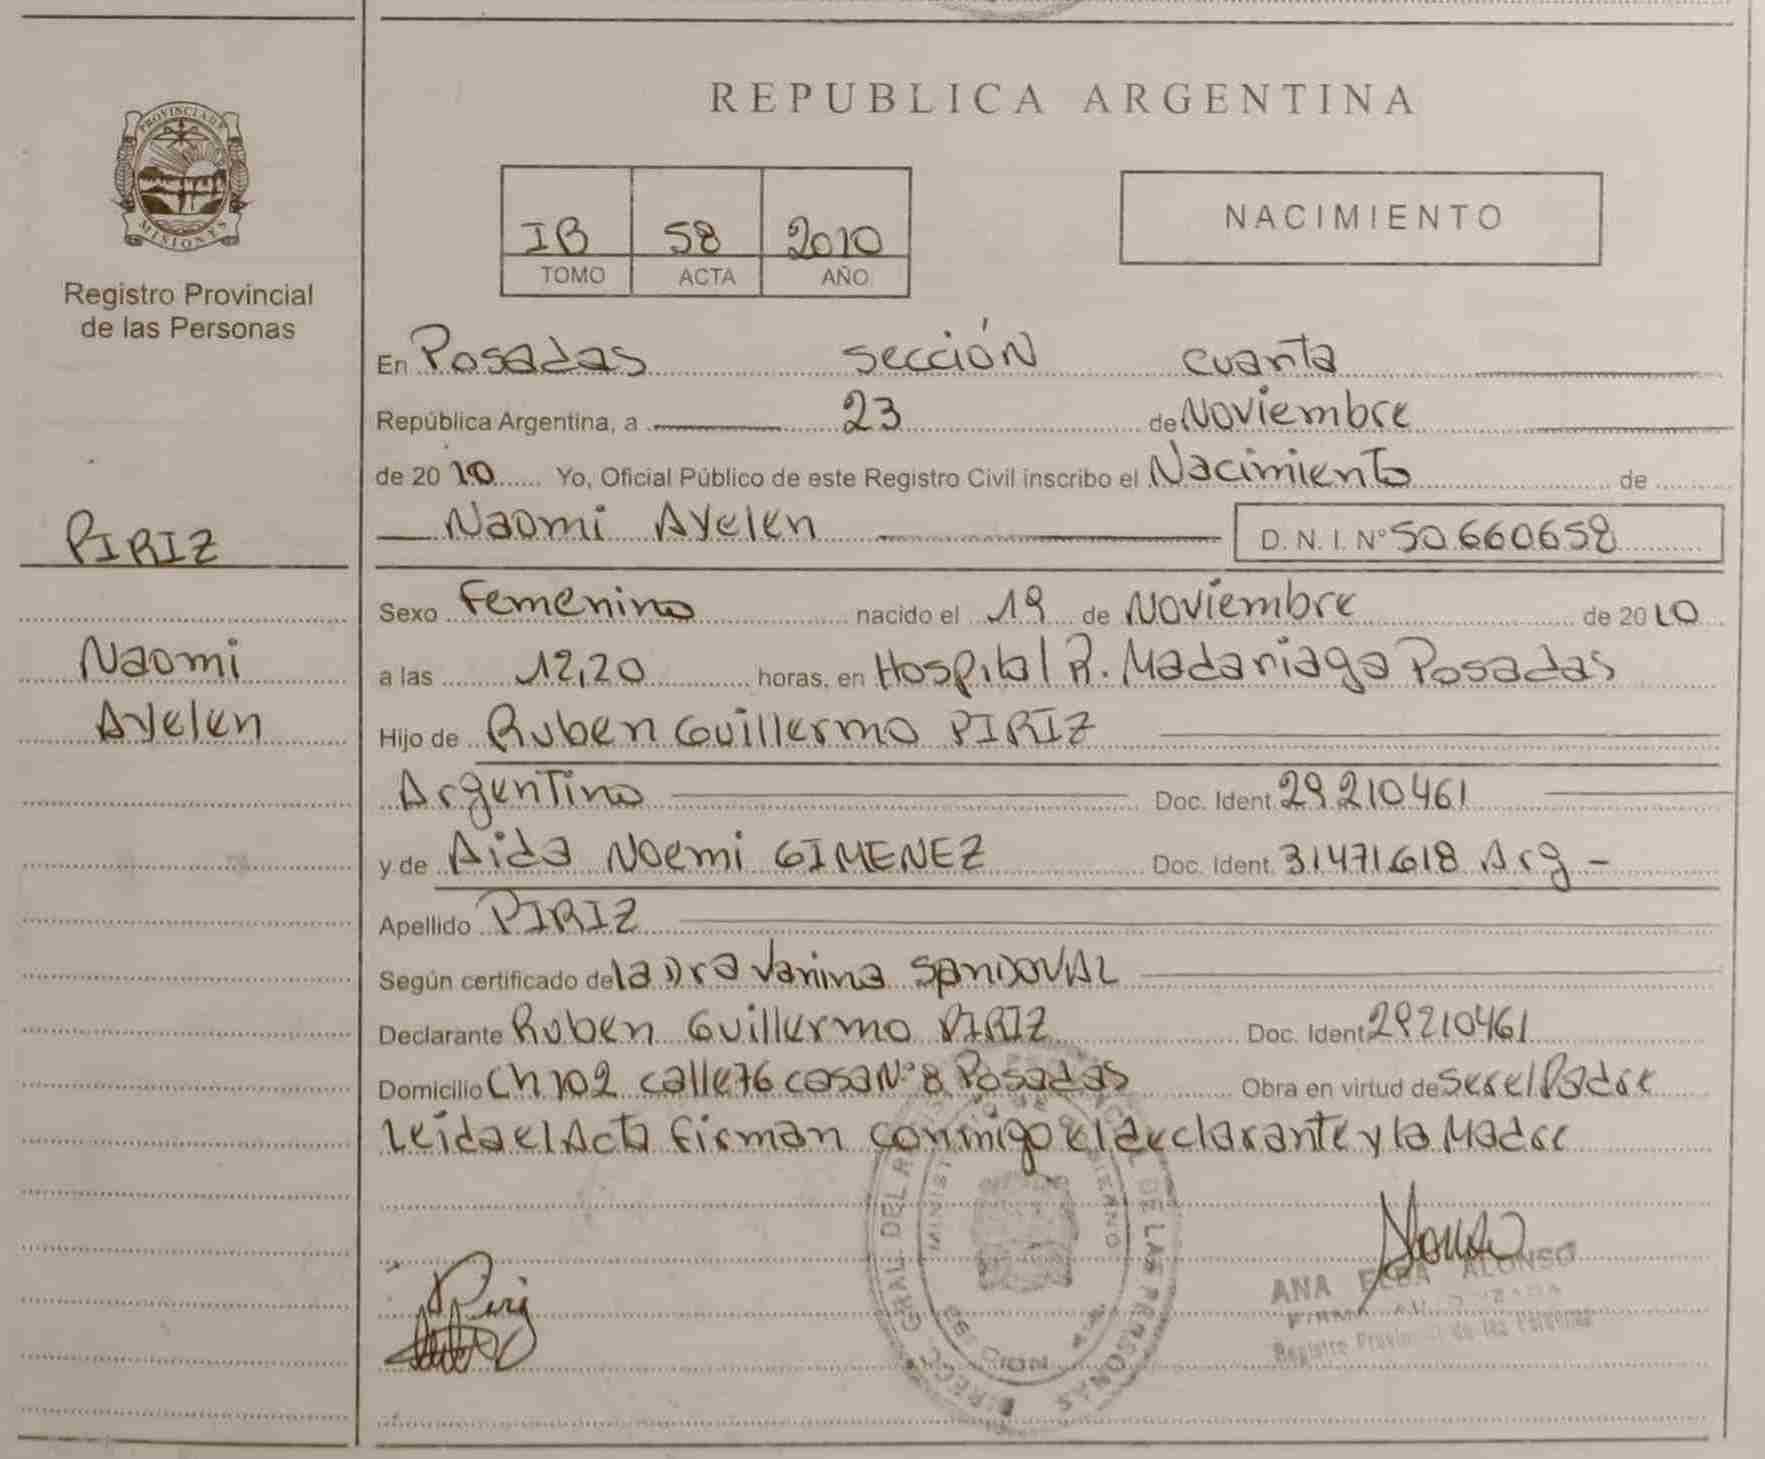 PROVINCIA DE
MISIONES
Registro Provincial
de las Personas
PIRIZ
Naomi
Ayelen
REPUBLICA ARGENTINA
IB 58 2010
TOMO ACTA AÑO
NACIMIENTO
En Posadas sección cuarta
República Argentina, a 23 de Noviembre
de 2010 Yo, Oficial Público de este Registro Civil inscribo el Nacimiento de
Naomi Ayelen D. N. I. N° 50.660.658
Sexo Femenino nacido el 19 de Noviembre de 2010
a las 12,20 horas, en Hospital R. Madariaga Posadas
Hijo de Ruben Guillermo PIRIZ
Argentino Doc. Ident. 29.210.461
y de Aida Noemi GIMENEZ Doc. Ident. 31.471.618 Arg -
Apellido PIRIZ
Según certificado de la Dra Vanina SANDOVAL
Declarante Ruben Guillermo PIRIZ Doc. Ident 29210461
Domicilio Ch 102 calle 76 casa N° 8 Posadas Obra en virtud de ser el Padre
Leida el Acta firman conmigo el declarante y la Madre
Piriz
Alonso
ANA ELBA ALONSO
FIRMA AUTORIZADA
Registro Provincial de las Personas
DIRECC. GRAL. DEL REG. PROVINCIAL DE LAS PERSONAS